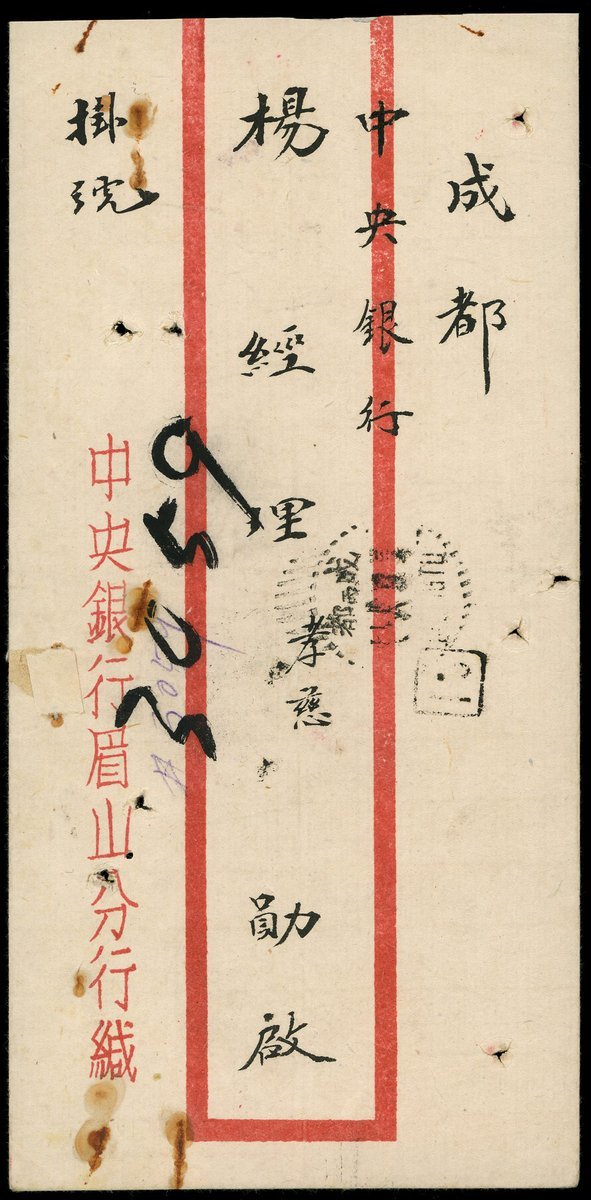 成都
中央銀行
楊經理孝慈勛啟
掛號
中央銀行眉山分行緘